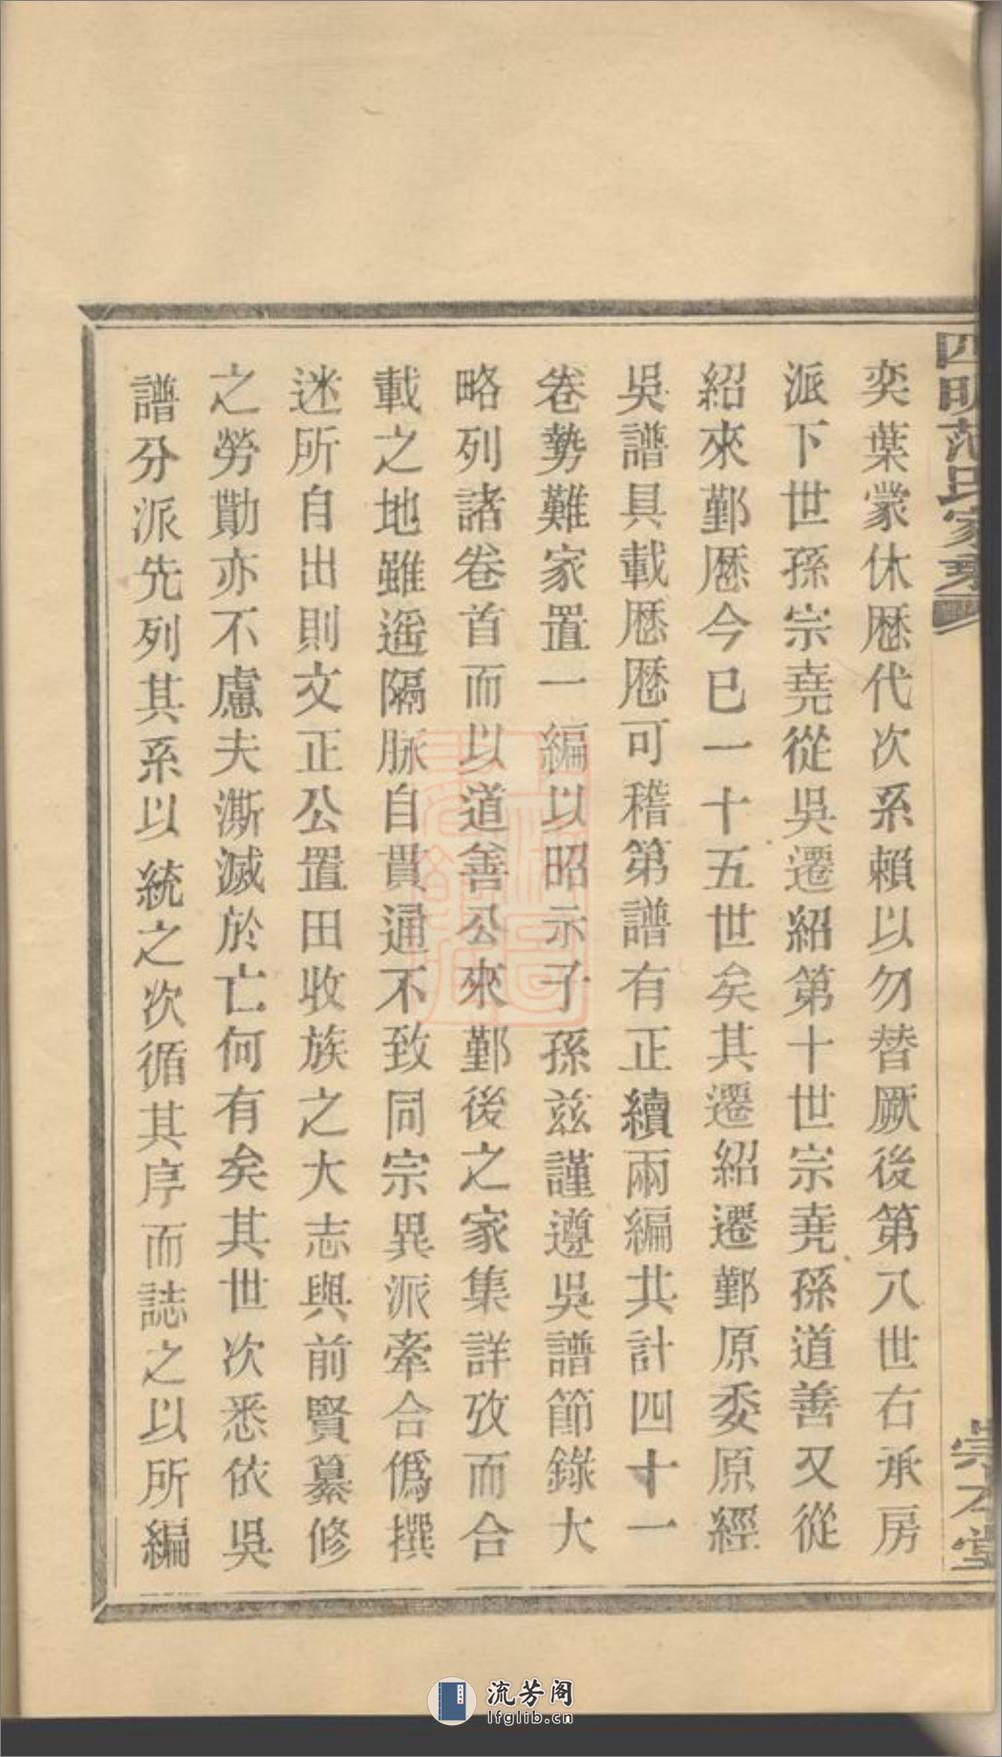 四明范氏家乘
崇本堂
奕葉蒙休歷代次系賴以勿替厥後第八世右承房
派下世孫宗堯從吳遷紹第十世宗堯孫道善又從
紹來鄞歷今已一十五世矣其遷紹遷鄞原委原經
吳譜具載歷歷可稽第譜有正續兩編共計四十一
卷勢難家置一編以昭示子孫茲謹遵吳譜節錄大
略列諸卷首而以道善公來鄞後之家集詳攷而合
載之地雖遥隔脉自貫通不致同宗異派牽合僞撰
迷所自出則文正公置田收族之大志與前賢纂修
之勞勩亦不慮夫澌滅於亡何有矣其世次悉依吳
譜分派先列其系以統之次循其序而誌之以所編
流芳阁
lfglib.cn